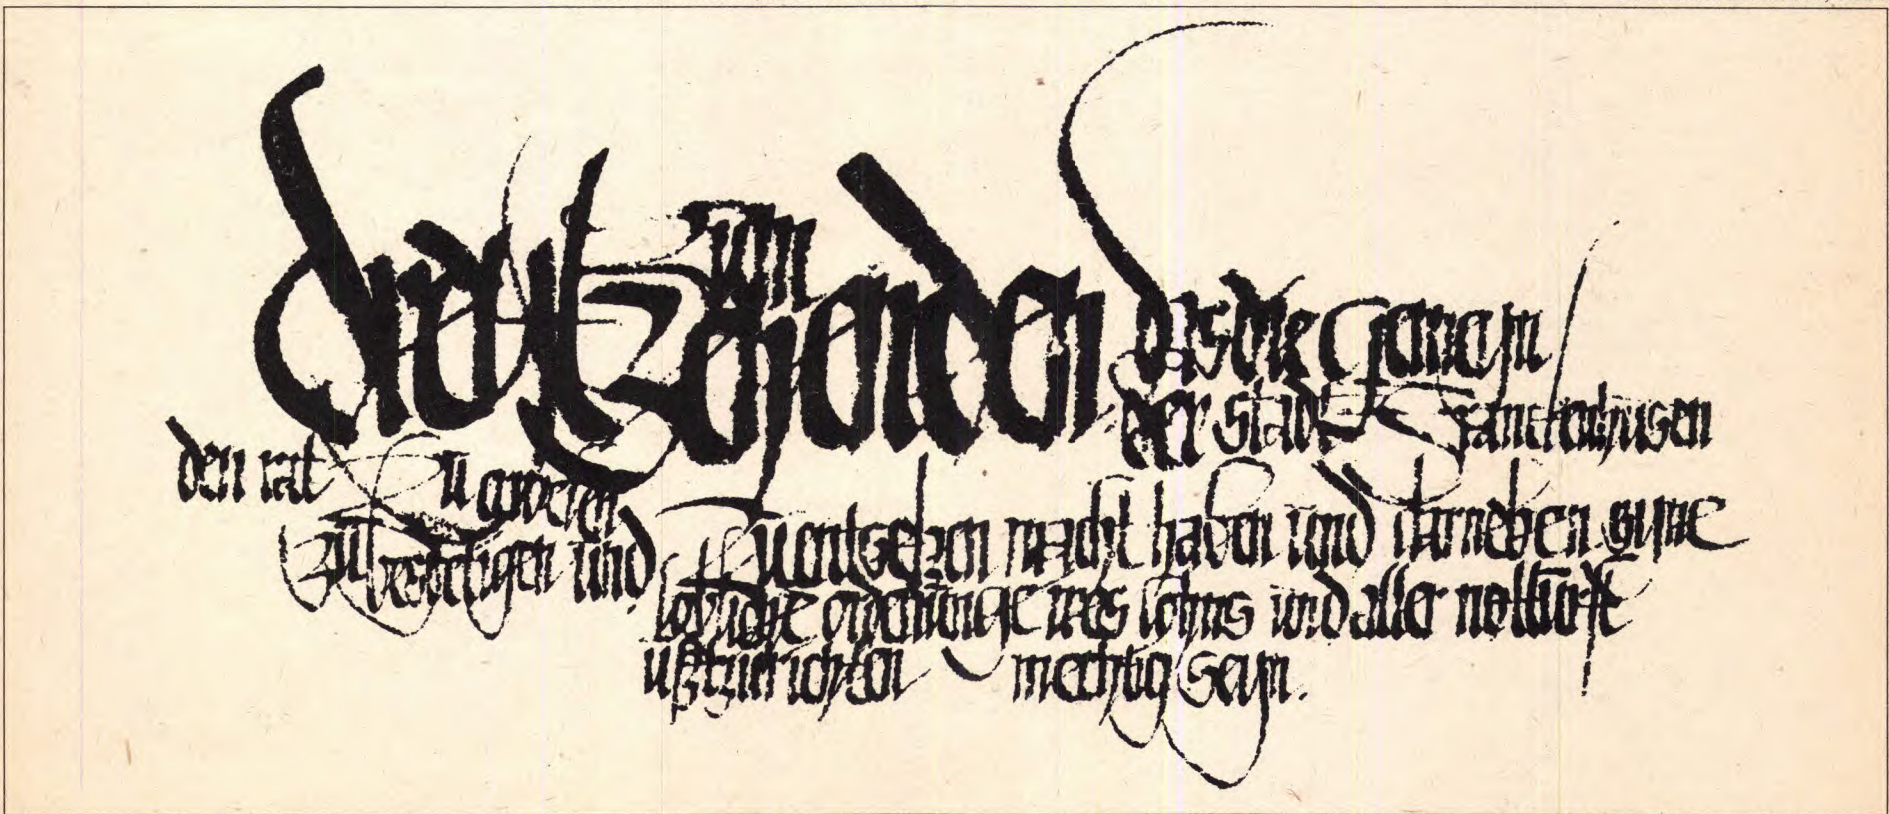 Zum
dreytzehenden das die Gemeyn
der stadt Franckenhusen
den rat Zu
Zu bestetigen und Zu entsetzen macht haben und darneben eyne
lobliche ordenunge ires lohns und aller nottürft
ußtzurichten mechtig seyn.